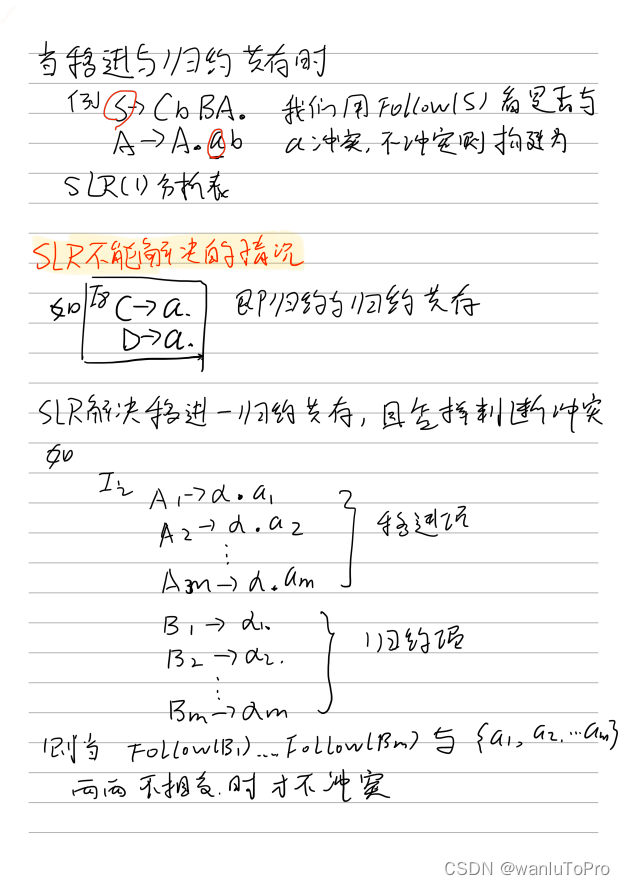 当移进与归约共存时
例 S→CbBA. 我们用Follow(S)看是否与
A→A.ab a冲突,不冲突则构建为
SLR(1)分析表
SLR不能解决的情况
如 I8 C→a. 即归约与归约共存
D→a.
SLR解决移进-归约共存,且会择判断冲突
如
I2 A1→α.a1
A2→α.a2 移进项
⋮
Am→α.am
B1→α1.
B2→α2. 归约项
⋮
Bm→αm
则当 Follow(B1)...Follow(Bm)与{a1,a2...am}
两两不相交.时才不冲突
CSDN @wanluToPro